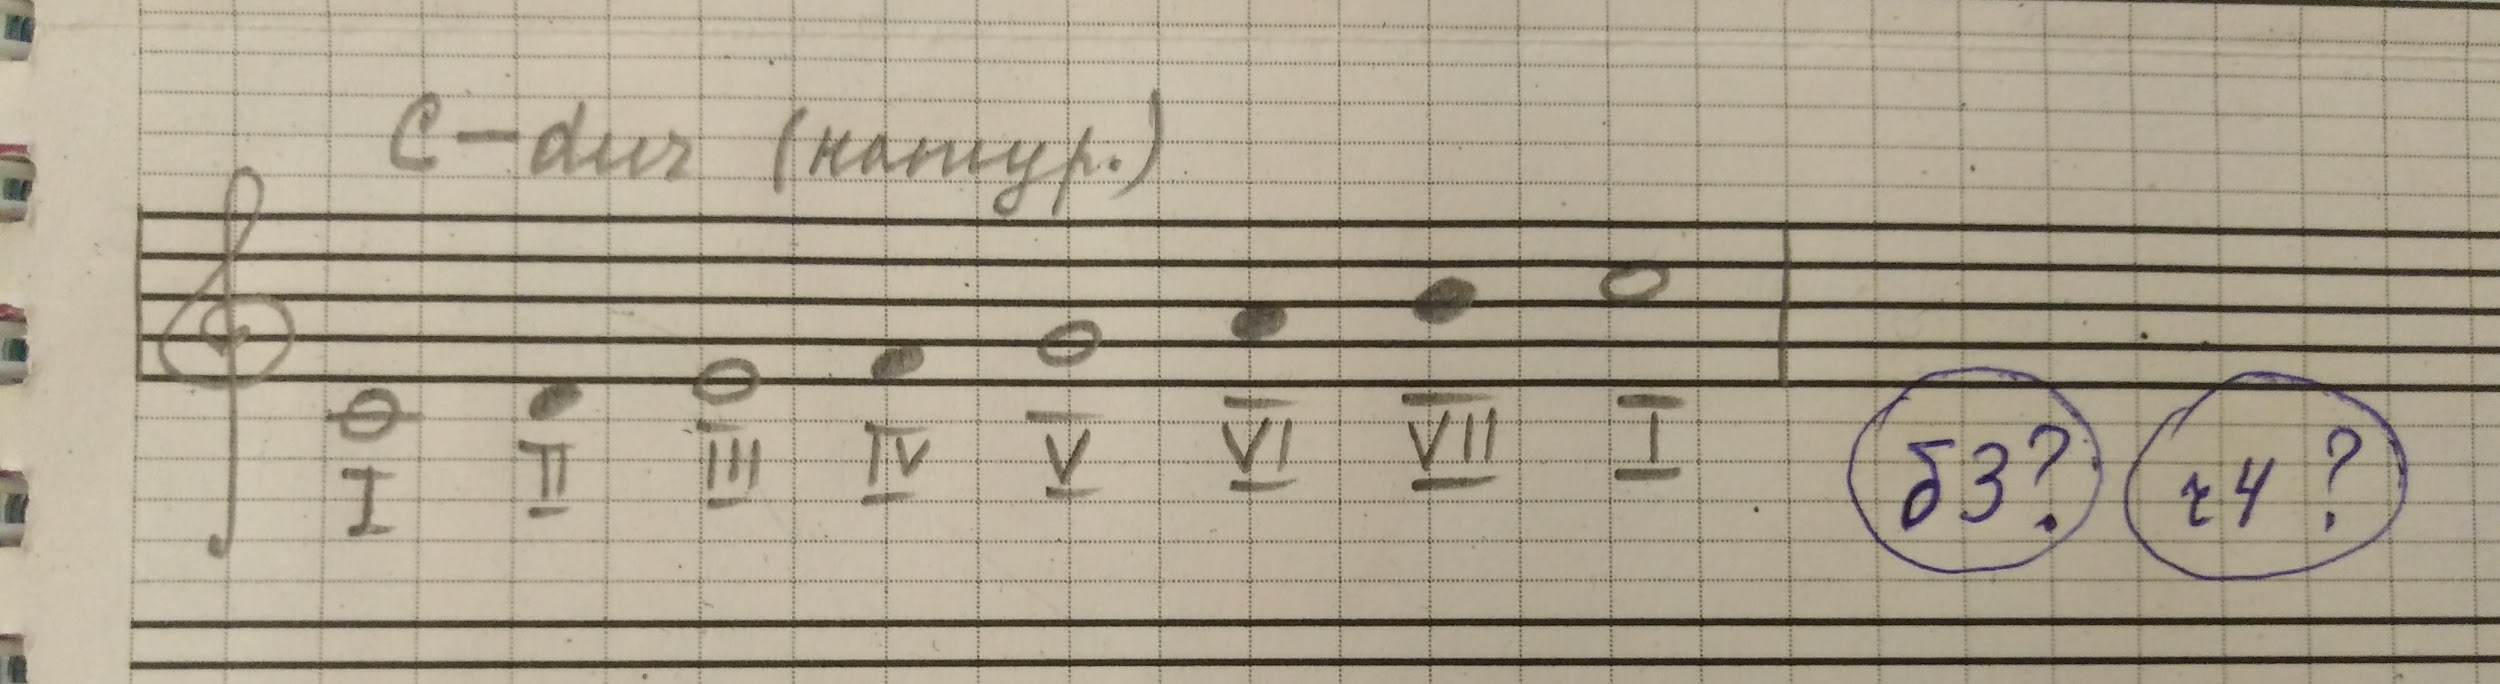 C-dur (натур.)
I II III IV V VI VII I
б3? ч4?